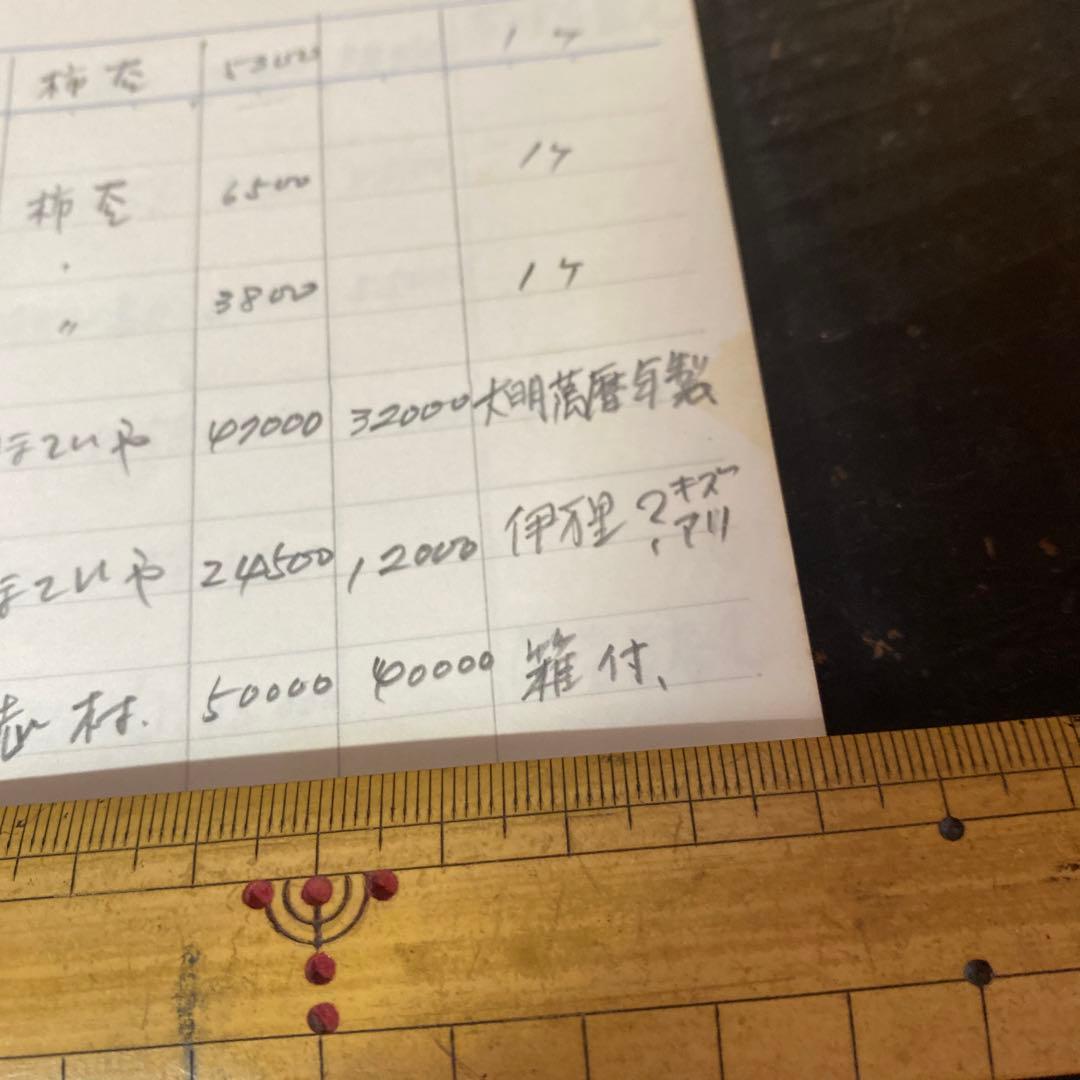 柿壱 1ケ
柿壱 6500 1ケ
〃 3800 1ケ
ほていや 47000 32000 大明萬暦年製
ほていや 24500 12000 伊万里？キズアリ
村. 50000 40000 箱付、